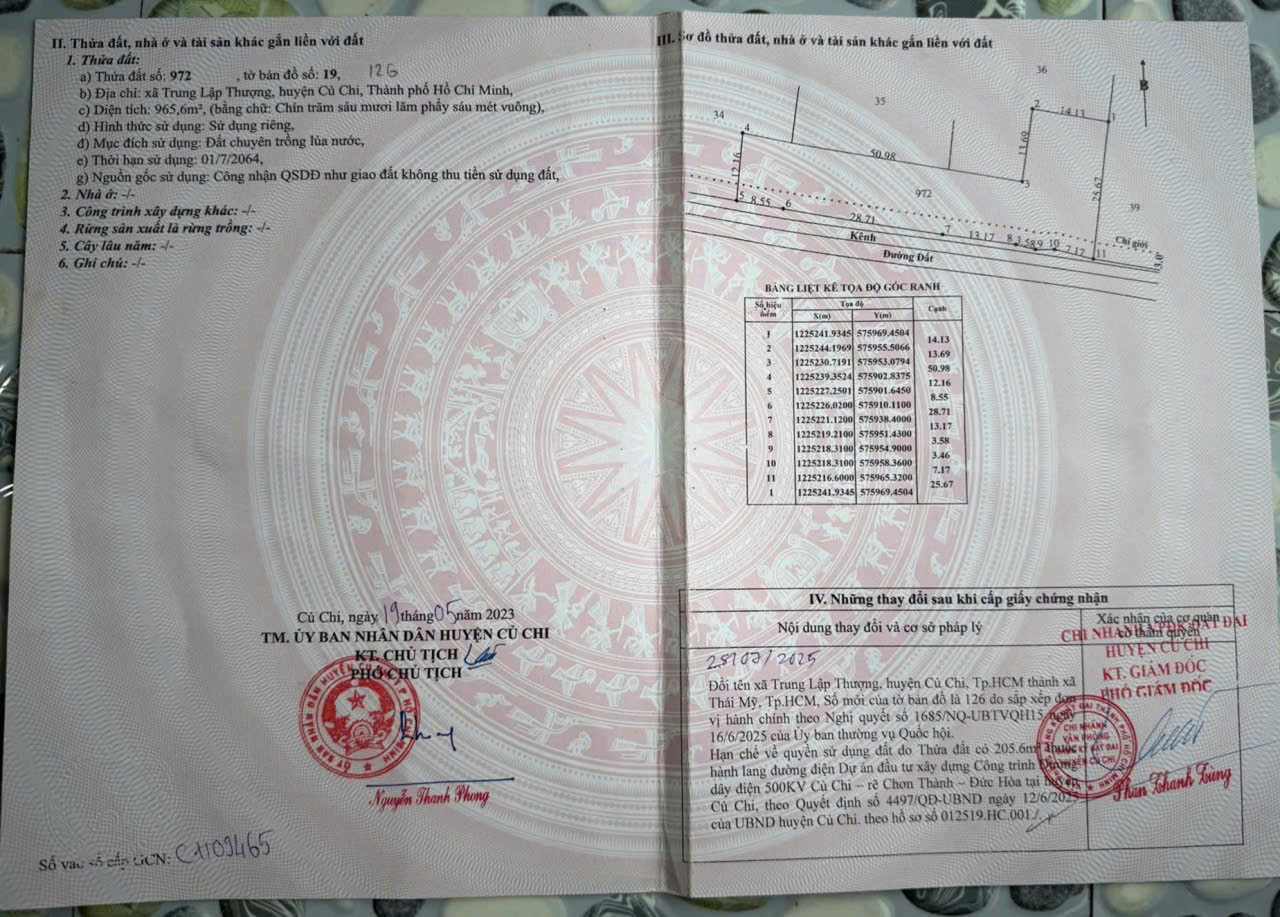 II. Thửa đất, nhà ở và tài sản khác gắn liền với đất
1. Thửa đất:
a) Thửa đất số: 972 , tờ bản đồ số: 19, 126
b) Địa chỉ: xã Trung Lập Thượng, huyện Củ Chi, Thành phố Hồ Chí Minh,
c) Diện tích: 965,6m², (bằng chữ: Chín trăm sáu mươi lăm phẩy sáu mét vuông),
d) Hình thức sử dụng: Sử dụng riêng,
đ) Mục đích sử dụng: Đất chuyên trồng lúa nước,
e) Thời hạn sử dụng: 01/7/2064,
g) Nguồn gốc sử dụng: Công nhận QSDĐ như giao đất không thu tiền sử dụng đất,
2. Nhà ở: -/-
3. Công trình xây dựng khác: -/-
4. Rừng sản xuất là rừng trồng: -/-
5. Cây lâu năm: -/-
6. Ghi chú: -/-
Củ Chi, ngày 19 tháng 05 năm 2023
TM. ỦY BAN NHÂN DÂN HUYỆN CỦ CHI
KT. CHỦ TỊCH
PHÓ CHỦ TỊCH
Nguyễn Thanh Phong
Số vào sổ cấp GCN: C1109465
III. Sơ đồ thửa đất, nhà ở và tài sản khác gắn liền với đất
36
B
35
34
2
14.13
1
4
13.69
50.98
12.16
3
25.67
972
39
5
8.55
6
28.71
7
13.17
8
3.58
9
10
7.17
11
Chỉ giới
Kênh
Đường Đất
BẢNG LIỆT KÊ TỌA ĐỘ GÓC RANH
Số hiệu điểm
Tọa độ
Cạnh
X(m) Y(m)
1 1225241.9345 575969.4504
14.13
2 1225244.1969 575955.5066
13.69
3 1225230.7191 575953.0794
50.98
4 1225239.3524 575902.8375
12.16
5 1225227.2501 575901.6450
8.55
6 1225226.0200 575910.1100
28.71
7 1225221.1200 575938.4000
13.17
8 1225219.2100 575951.4300
3.58
9 1225218.3100 575954.9000
3.46
10 1225218.3100 575958.3600
7.17
11 1225216.6000 575965.3200
25.67
1 1225241.9345 575969.4504
IV. Những thay đổi sau khi cấp giấy chứng nhận
Nội dung thay đổi và cơ sở pháp lý
Xác nhận của cơ quan
có thẩm quyền
CHI NHÁNH VPĐK ĐẤT ĐAI
HUYỆN CỦ CHI
KT. GIÁM ĐỐC
PHÓ GIÁM ĐỐC
Đổi tên xã Trung Lập Thượng, huyện Củ Chi, Tp.HCM thành xã
Thái Mỹ, Tp.HCM, Số mới của tờ bản đồ là 126 do sắp xếp đơn
vị hành chính theo Nghị quyết số 1685/NQ-UBTVQH15 ngày
16/6/2025 của Ủy ban thường vụ Quốc hội.
Hạn chế về quyền sử dụng đất do Thửa đất có 205.6m² thuộc
hành lang đường điện Dự án đầu tư xây dựng Công trình Đường
dây điện 500KV Củ Chi – rẽ Chơn Thành – Đức Hòa tại huyện
Củ Chi, theo Quyết định số 4497/QĐ-UBND ngày 12/6/2025
của UBND huyện Củ Chi. theo hồ sơ số 012519.HC.001./.
CHI NHÁNH
VĂN PHÒNG
ĐĂNG KÝ ĐẤT ĐAI
HUYỆN CỦ CHI
Phan Thanh Dũng